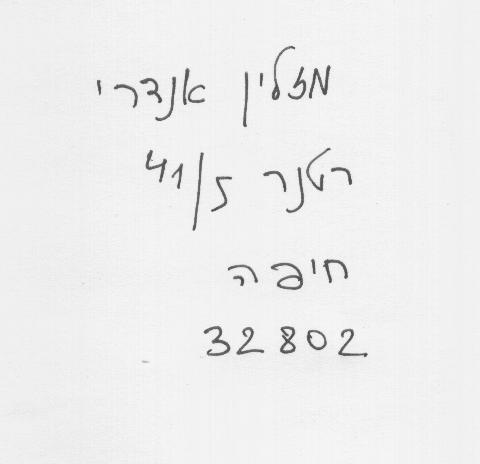 מזלין אנדרי
רטנר 5/41
חיפה
32802